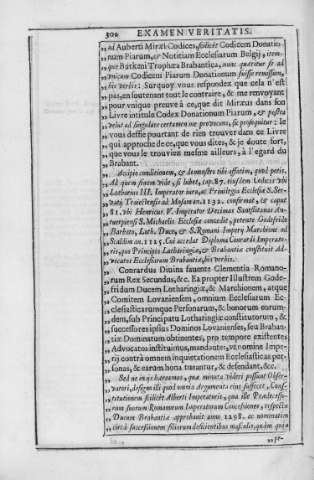 302 EXAMEN VERITATIS.
„ ad Auberti Miræi Codices, scilicet Codicem Donatio-
„ num Piarum, & Notitiam Ecclesiarum Belgij, item-
„ que Butkeni Trophæa Brabantica, nunc quæritur se ad
„ unicum Codicem Piarum Donationum fuisse remissum,
„ his verbis: Surquoy vous respondez que cela n'est
„ pas, en soutenant tout le contraire, & me renvoyant
„ pour vnique preuve à ce, que dit Miræus dans son
„ Livre intitulé Codex Donationum Piarum, & postea
„ velut ad singulare certamen me provocans, sic prosequitur: le
„ vous deffie pourtant de rien trouver dans ce Livre
„ qui approche de ce, que vous dites, & je doute fort,
„ que vous le trouviez mesme ailleurs, à l'egard du
„ Brabant.
„ Accipio conditionem, & demonstro tibi assertum, quod petis.
„ Ad quem finem vide, si lubet, cap. 87. eiusdem Codicis ubi
„ Lotharius III. Imperator iura, ac Privilegia Ecclesiæ S. Ser-
„ vatij Traiectensis ad Mosam anno 1132. confirmat, & caput
„ 81. ubi Henricus V. Imperator Decimas Santflitanas An-
„ tverpiensis S. Michaëlis Ecclesiæ concedit, petente Godefrido
„ Barbato, Loth. Duce, & S. Romani Imperij Marchione ad
„ Scaldim an. 1125. Cui accedat Diploma Conrardi Imperato-
„ ris, quo Principes Lotharingiæ, & Brabantiæ constituit Ad-
„ vocatos Ecclesiarum Brabantiæ, his verbis.
„ Conrardus Divina favente Clementia Romano-
„ rum Rex Secundus, &c. Ea propter Illustrem Gode-
„ fridum Ducem Lotharingiæ, & Marchionem, atque
„ Comitem Lovaniensem, omnium Ecclesiarum Ec-
„ clesiasticarumque Personarum, & bonorum eorum-
„ dem, sub Principatu Lotharingiæ constitutorum, &
„ successores ipsius Dominos Lovanienses, seu Braban-
„ tiæ Dominatum obtinentes, pro tempore existentes
„ Advocatos instituimus, mandantes, vt nomine Impe-
„ rij contrà omnem inquietationem Ecclesiasticas per-
„ sonas, & earum bona tueantur, & defendant, &c.
„ Sed ne majis hæreamus, quæ minuta videri possunt Obser-
„ vatori, desero illi quod omnia Argumenta eius suffecit, Con-
„ stitutionem scilicet Alberti Imperatoris, qua ille Prædecesso-
„ rum suorum Romanorum Imperatorum Concessiones, respectu
„ Ducum Brabantiæ approbavit anno 1298. ac nominatim
„ circà successionem filiarum deficientibus masculis, quàm quoad